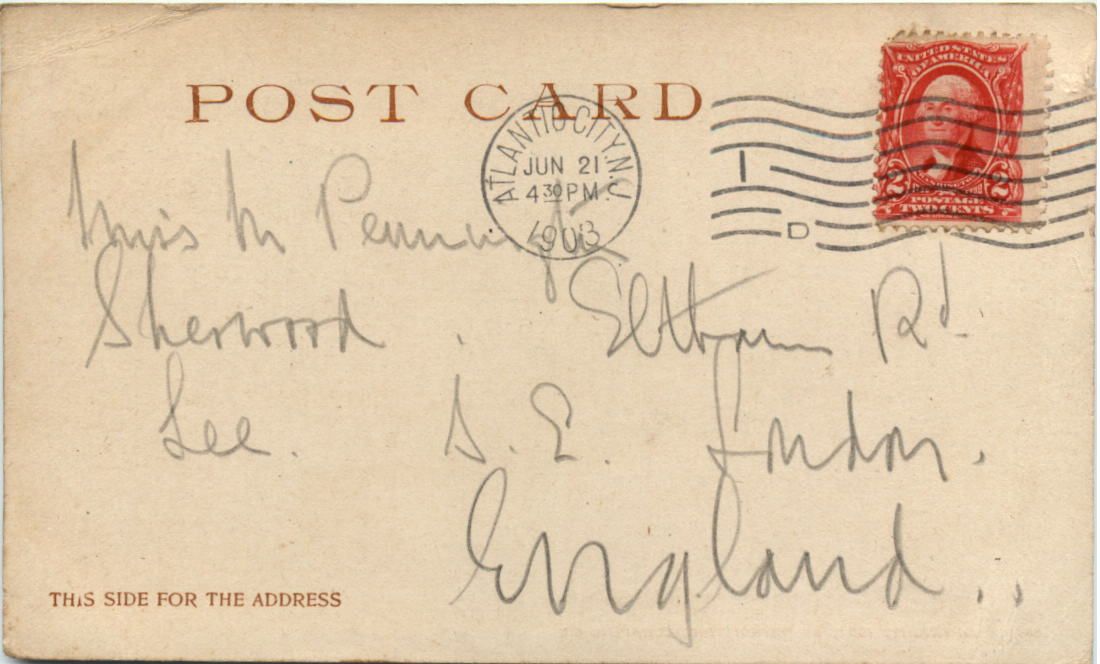 POST CARD
ATLANTIC CITY, N.J.
JUN 21
4 30 PM
1903
1
D
UNITED STATES
OF AMERICA
2 2
POSTAGE
TWO CENTS
Miss M
Sherwood . Eltham Rd
Lee. S. E. London.
England . .
THIS SIDE FOR THE ADDRESS